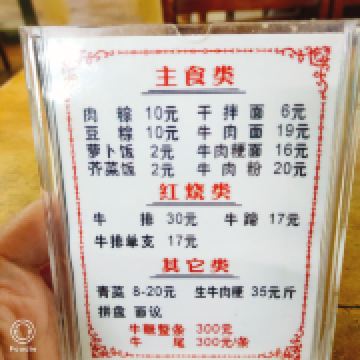 主食类
肉粽 10元 干拌面 6元
豆粽 10元 牛肉面 19元
萝卜饭 2元 牛肉梗面 16元
芥菜饭 2元 牛肉粉 20元
红烧类
牛排 30元 牛蹄 17元
牛排单支 17元
其它类
青菜 8-20元 生牛肉梗 35元斤
拼盘 面议
牛鞭整条 300元
牛尾 300元/条